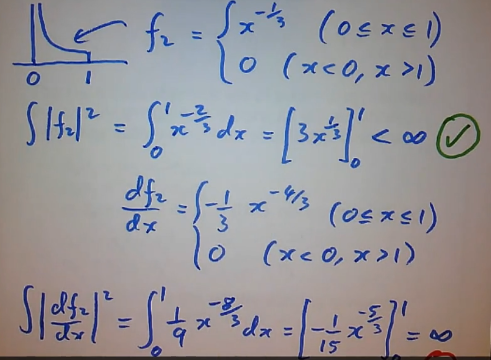 f₂ = { x^{-1/3} (0 ≤ x ≤ 1)
0 (x<0, x>1)
0 1
∫|f₂|² = ∫₀¹ x^{-2/3} dx = [3x^{1/3}]₀¹ < ∞ ✓
df₂/dx = { -1/3 x^{-4/3} (0≤x≤1)
0 (x<0, x>1)
∫|df₂/dx|² = ∫₀¹ 1/9 x^{-8/3} dx = [-1/15 x^{-5/3}]₀¹ = ∞